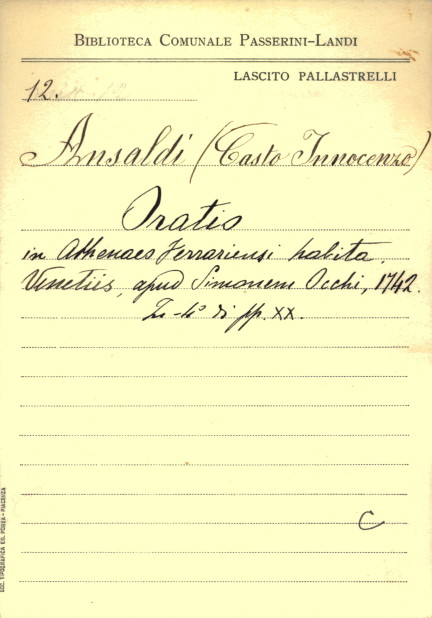 BIBLIOTECA COMUNALE PASSERINI-LANDI
LASCITO PALLASTRELLI
12.
Ansaldi (Casto Innocenzo)
Oratio
in Athenaeo Ferrariensi habita.
Venetiis, apud Simonem Occhi, 1742.
In-4° di pp. XX.
C
SOC. TIPOGRAFICA ED. PORTA - PIACENZA